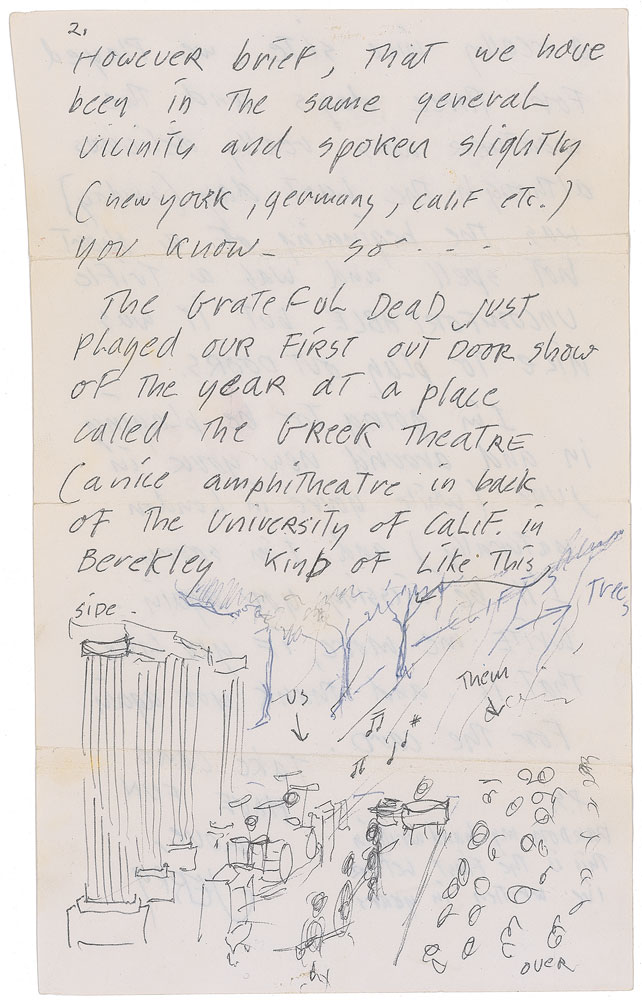 2.
However brief, That we have
been in The same general
vicinity and spoken slightly
(new york, germany, calif etc.)
you know - so - - -
The Grateful Dead just
played our First out Door show
of The year at a place
called The Greek Theatre
(a nice amphitheatre in back
of The University of Calif. in
Berekley Kind of Like This
side.
Trees
us
Them
over